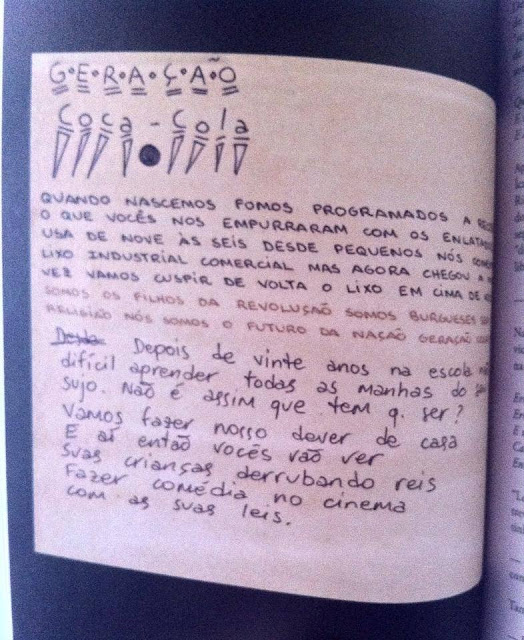 G.E.R.A.ÇÃO
Coca-Cola
QUANDO NASCEMOS FOMOS PROGRAMADOS A
O QUE VOCÊS NOS EMPURRARAM COM OS
USA DE NOVE ÀS SEIS DESDE PEQUENOS NÓS
LIXO INDUSTRIAL COMERCIAL MAS AGORA CHEGOU
VEZ VAMOS CUSPIR DE VOLTA O LIXO EM CIMA DE
SOMOS OS FILHOS DA REVOLUÇÃO SOMOS BURGUESES
RELIGIÃO NÓS SOMOS O FUTURO DA NAÇÃO GERAÇÃO
Depois de vinte anos na escola
difícil aprender todas as manhas do
sujo. Não é assim que tem q. ser?
Vamos fazer nosso dever de casa
E aí então vocês vão ver
Suas crianças derrubando reis
Fazer comédia no cinema
com as suas leis.